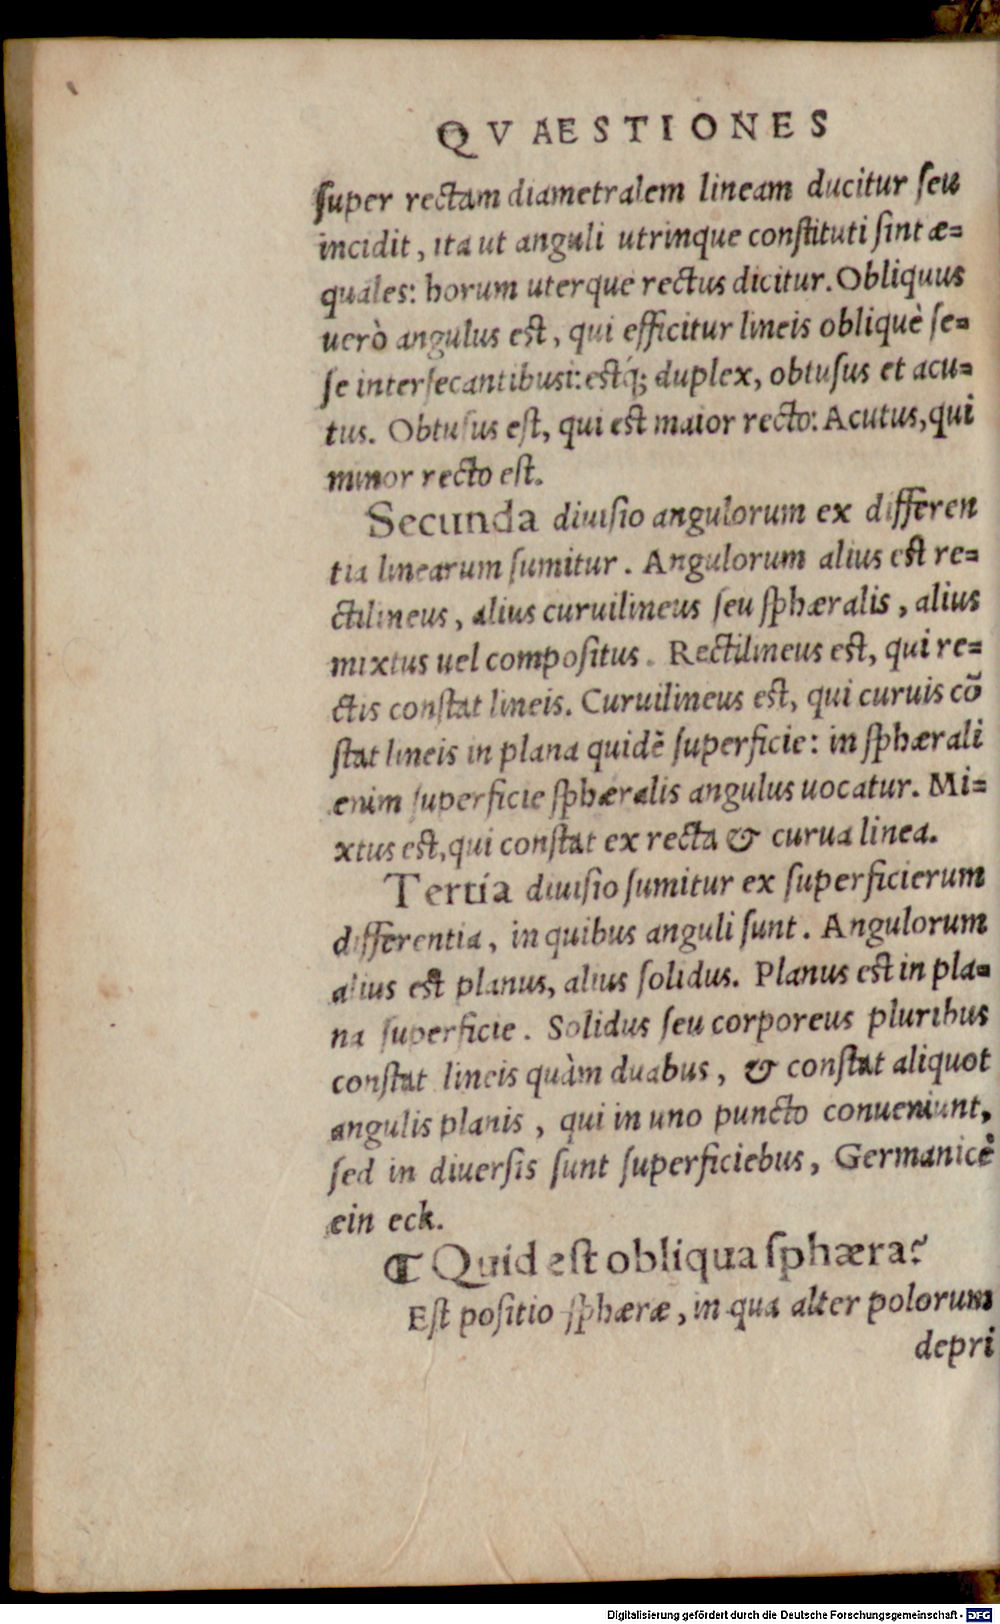 QVAESTIONES
super rectam diametralem lineam ducitur seu
incidit, ita ut anguli utrinque constituti sint æ=
quales: horum uterque rectus dicitur. Obliquus
uerò angulus est, qui efficitur lineis obliquè se=
se intersecantibusi: estq́; duplex, obtusus et acu=
tus. Obtusus est, qui est maior recto: Acutus, qui
minor recto est.
Secunda diuisio angulorum ex differen
tia linearum sumitur. Angulorum alius est re=
ctilineus, alius curuilineus seu sphæralis, alius
mixtus uel compositus. Rectilineus est, qui re=
ctis constat lineis. Curuilineus est, qui curuis cõ
stat lineis in plana quidẽ superficie: in sphærali
enim superficie sphæralis angulus uocatur. Mi=
xtus est, qui constat ex recta & curua linea.
Tertia diuisio sumitur ex superficierum
differentia, in quibus anguli sunt. Angulorum
alius est planus, alius solidus. Planus est in pla=
na superficie. Solidus seu corporeus pluribus
constat lineis quàm duabus, & constat aliquot
angulis planis, qui in uno puncto conueniunt,
sed in diuersis sunt superficiebus, Germanicè
ein eck.
¶ Quid est obliqua sphæra?
Est positio sphæræ, in qua alter polorum
depri
Digitalisierung gefördert durch die Deutsche Forschungsgemeinschaft - DFG